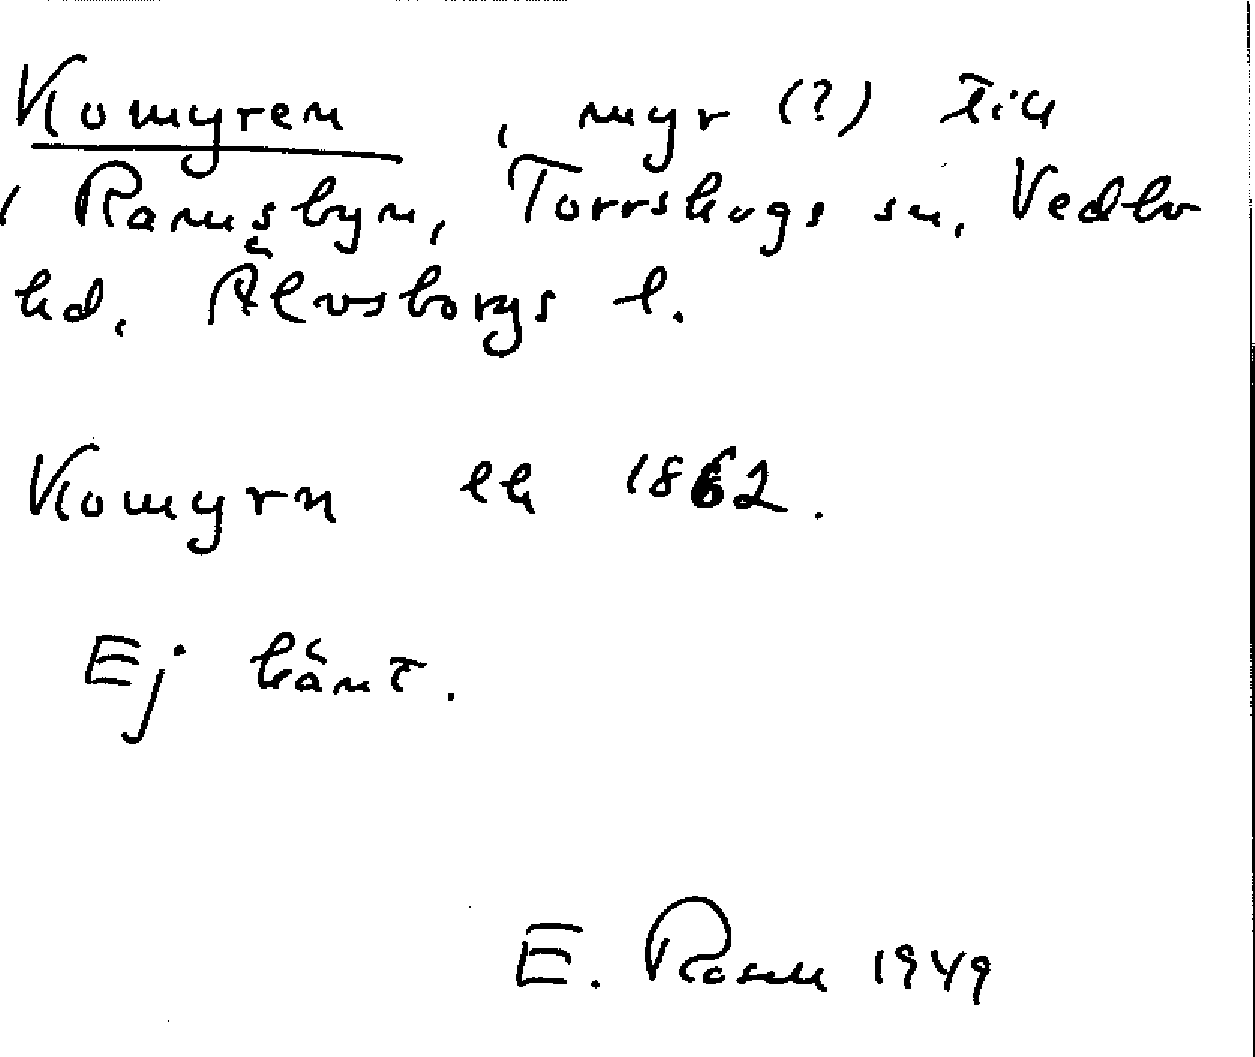 Komyren, myr (?) till
1 Ramsbyn, Torrskogs sn, Vedbo
hd, Älvsborgs l.
Komyrn ek 1862.
Ej känt.
E. Rosell 1949